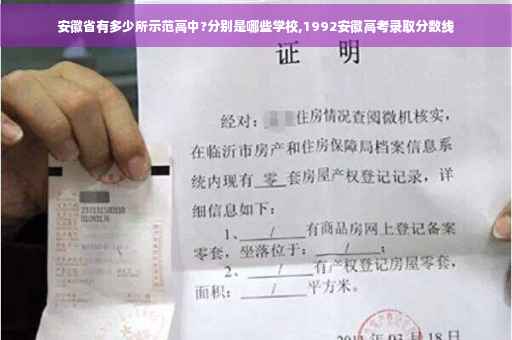 安徽省有多少所示范高中?分别是哪些学校,1992安徽高考录取分数线
证 明
经对:住房情况查阅微机核实,
在临沂市房产和住房保障局档案信息系
统内现有 零 套房屋产权登记记录,详
细信息如下:
1、 / 有商品房网上登记备案
零套,坐落位于: / ;
2、 / 有产权登记房屋零套,
面积: / 平方米。
03月18日